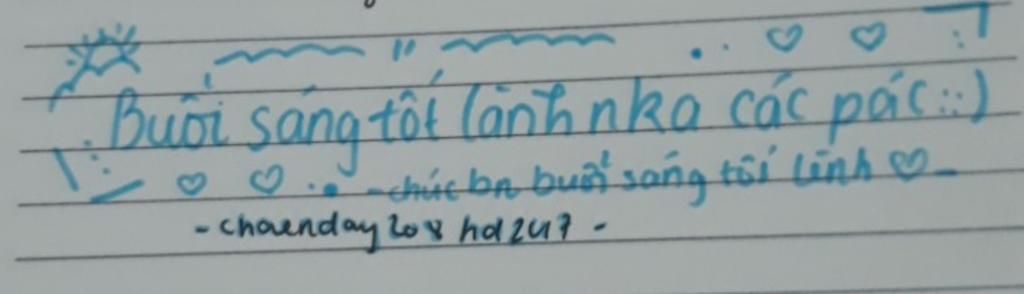 Buổi sáng tốt lành nka các pác ::)
- chúc bn buổi sáng tốt lành ♡ -
- chaenday208 hd247 -